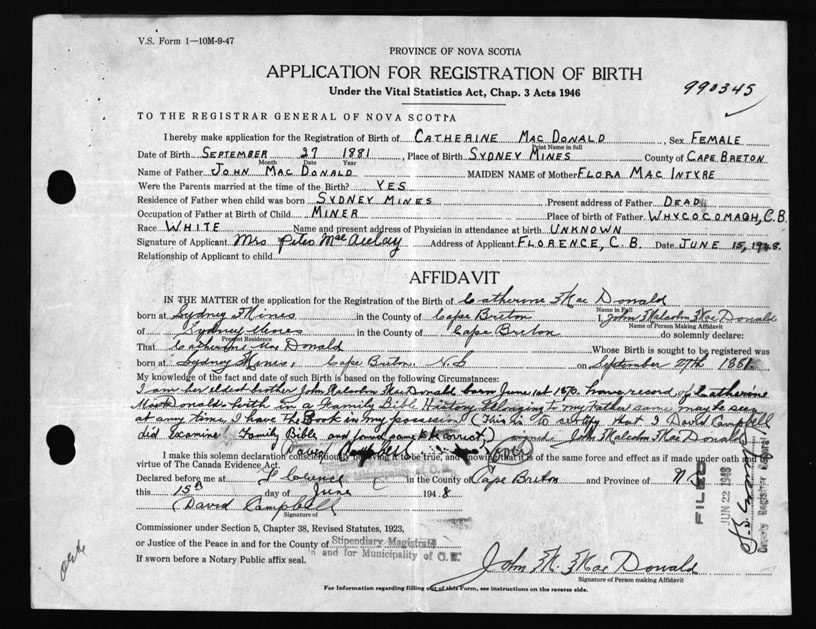 V.S. Form 1—10M-9-47
PROVINCE OF NOVA SCOTIA
APPLICATION FOR REGISTRATION OF BIRTH
990345
Under the Vital Statistics Act, Chap. 3 Acts 1946
TO THE REGISTRAR GENERAL OF NOVA SCOTIA
I hereby make application for the Registration of Birth of CATHERINE MAC DONALD, Sex FEMALE
Print Name in full
Date of Birth SEPTEMBER 27 1881, Place of Birth SYDNEY MINES County of CAPE BRETON
Month Date Year
Name of Father JOHN MAC DONALD MAIDEN NAME of Mother FLORA MAC INTYRE
Were the Parents married at the time of the Birth? YES
Residence of Father when child was born SYDNEY MINES Present address of Father DEAD
Occupation of Father at Birth of Child MINER Place of birth of Father WHYCOCOMAGH, C.B.
Race WHITE Name and present address of Physician in attendance at birth UNKNOWN
Signature of Applicant Mrs Peter MacAulay Address of Applicant FLORENCE, C.B. Date JUNE 15, 1948.
Relationship of Applicant to child
AFFIDAVIT
IN THE MATTER of the application for the Registration of the Birth of Catherine Mac Donald
Name in Full
born at Sydney Mines in the County of Cape Breton I, John Malcolm MacDonald
Name of Person Making Affidavit
of Sydney Mines in the County of Cape Breton do solemnly declare:
Present Residence
That Catherine Mac Donald Whose Birth is sought to be registered was
born at Sydney Mines, Cape Breton, N.S on September 27th 1881
My knowledge of the fact and date of such Birth is based on the following Circumstances:
I am her eldest brother John Malcolm MacDonald born June 1st 1870, have record of Catherine
MacDonald's birth in a Family Bible History belonging to my Father same may be seen
at any time, I have the Book in my possession (This is to certify that I David Campbell
did Examine Family Bible and found same to be correct) John Malcolm MacDonald
David Campbell
I make this solemn declaration conscientiously believing it to be true, and knowing that it is of the same force and effect as if made under oath and
virtue of The Canada Evidence Act.
Declared before me at Florence in the County of Cape Breton and Province of N.S
this 15th day of June 1948
David Campbell
Signature of
Commissioner under Section 5, Chapter 38, Revised Statutes, 1923,
or Justice of the Peace in and for the County of Stipendiary Magistrate
in and for Municipality of C. B.
If sworn before a Notary Public affix seal.
John M. MacDonald
Signature of Person making Affidavit
For Information regarding filling out of Form, see instructions on the reverse side.
FILED
JUN 22 1948
Deputy Registrar General